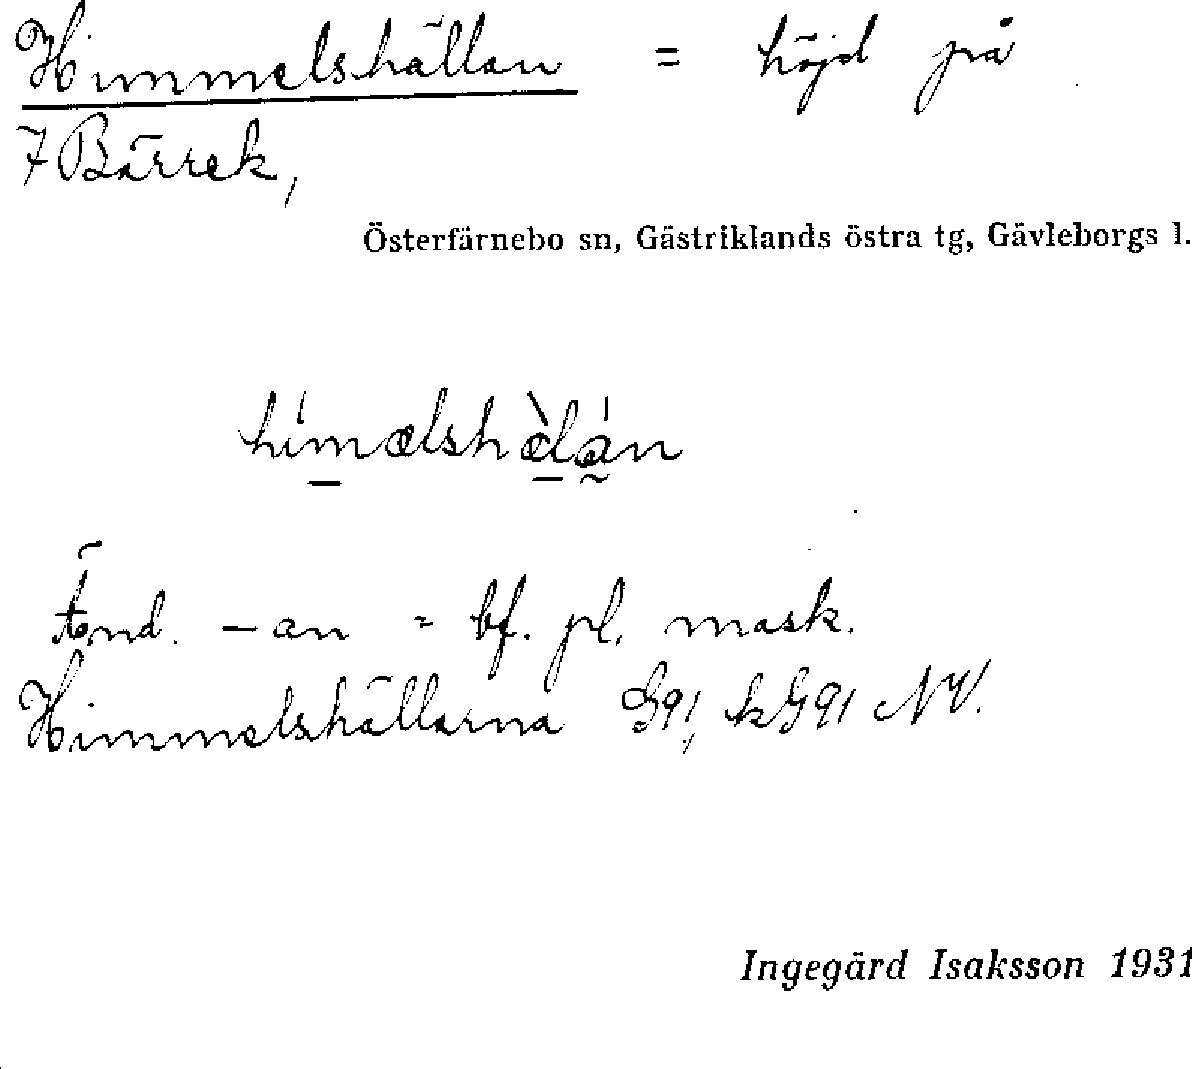 Himmelshällan = höjd på
7 Bärrek,
Österfärnebo sn, Gästriklands östra tg, Gävleborgs l.
hímælshæ̀lán
Änd. -an = bf. pl. mask.
Himmelshällarna G91, kG91 NV.
Ingegärd Isaksson 1931